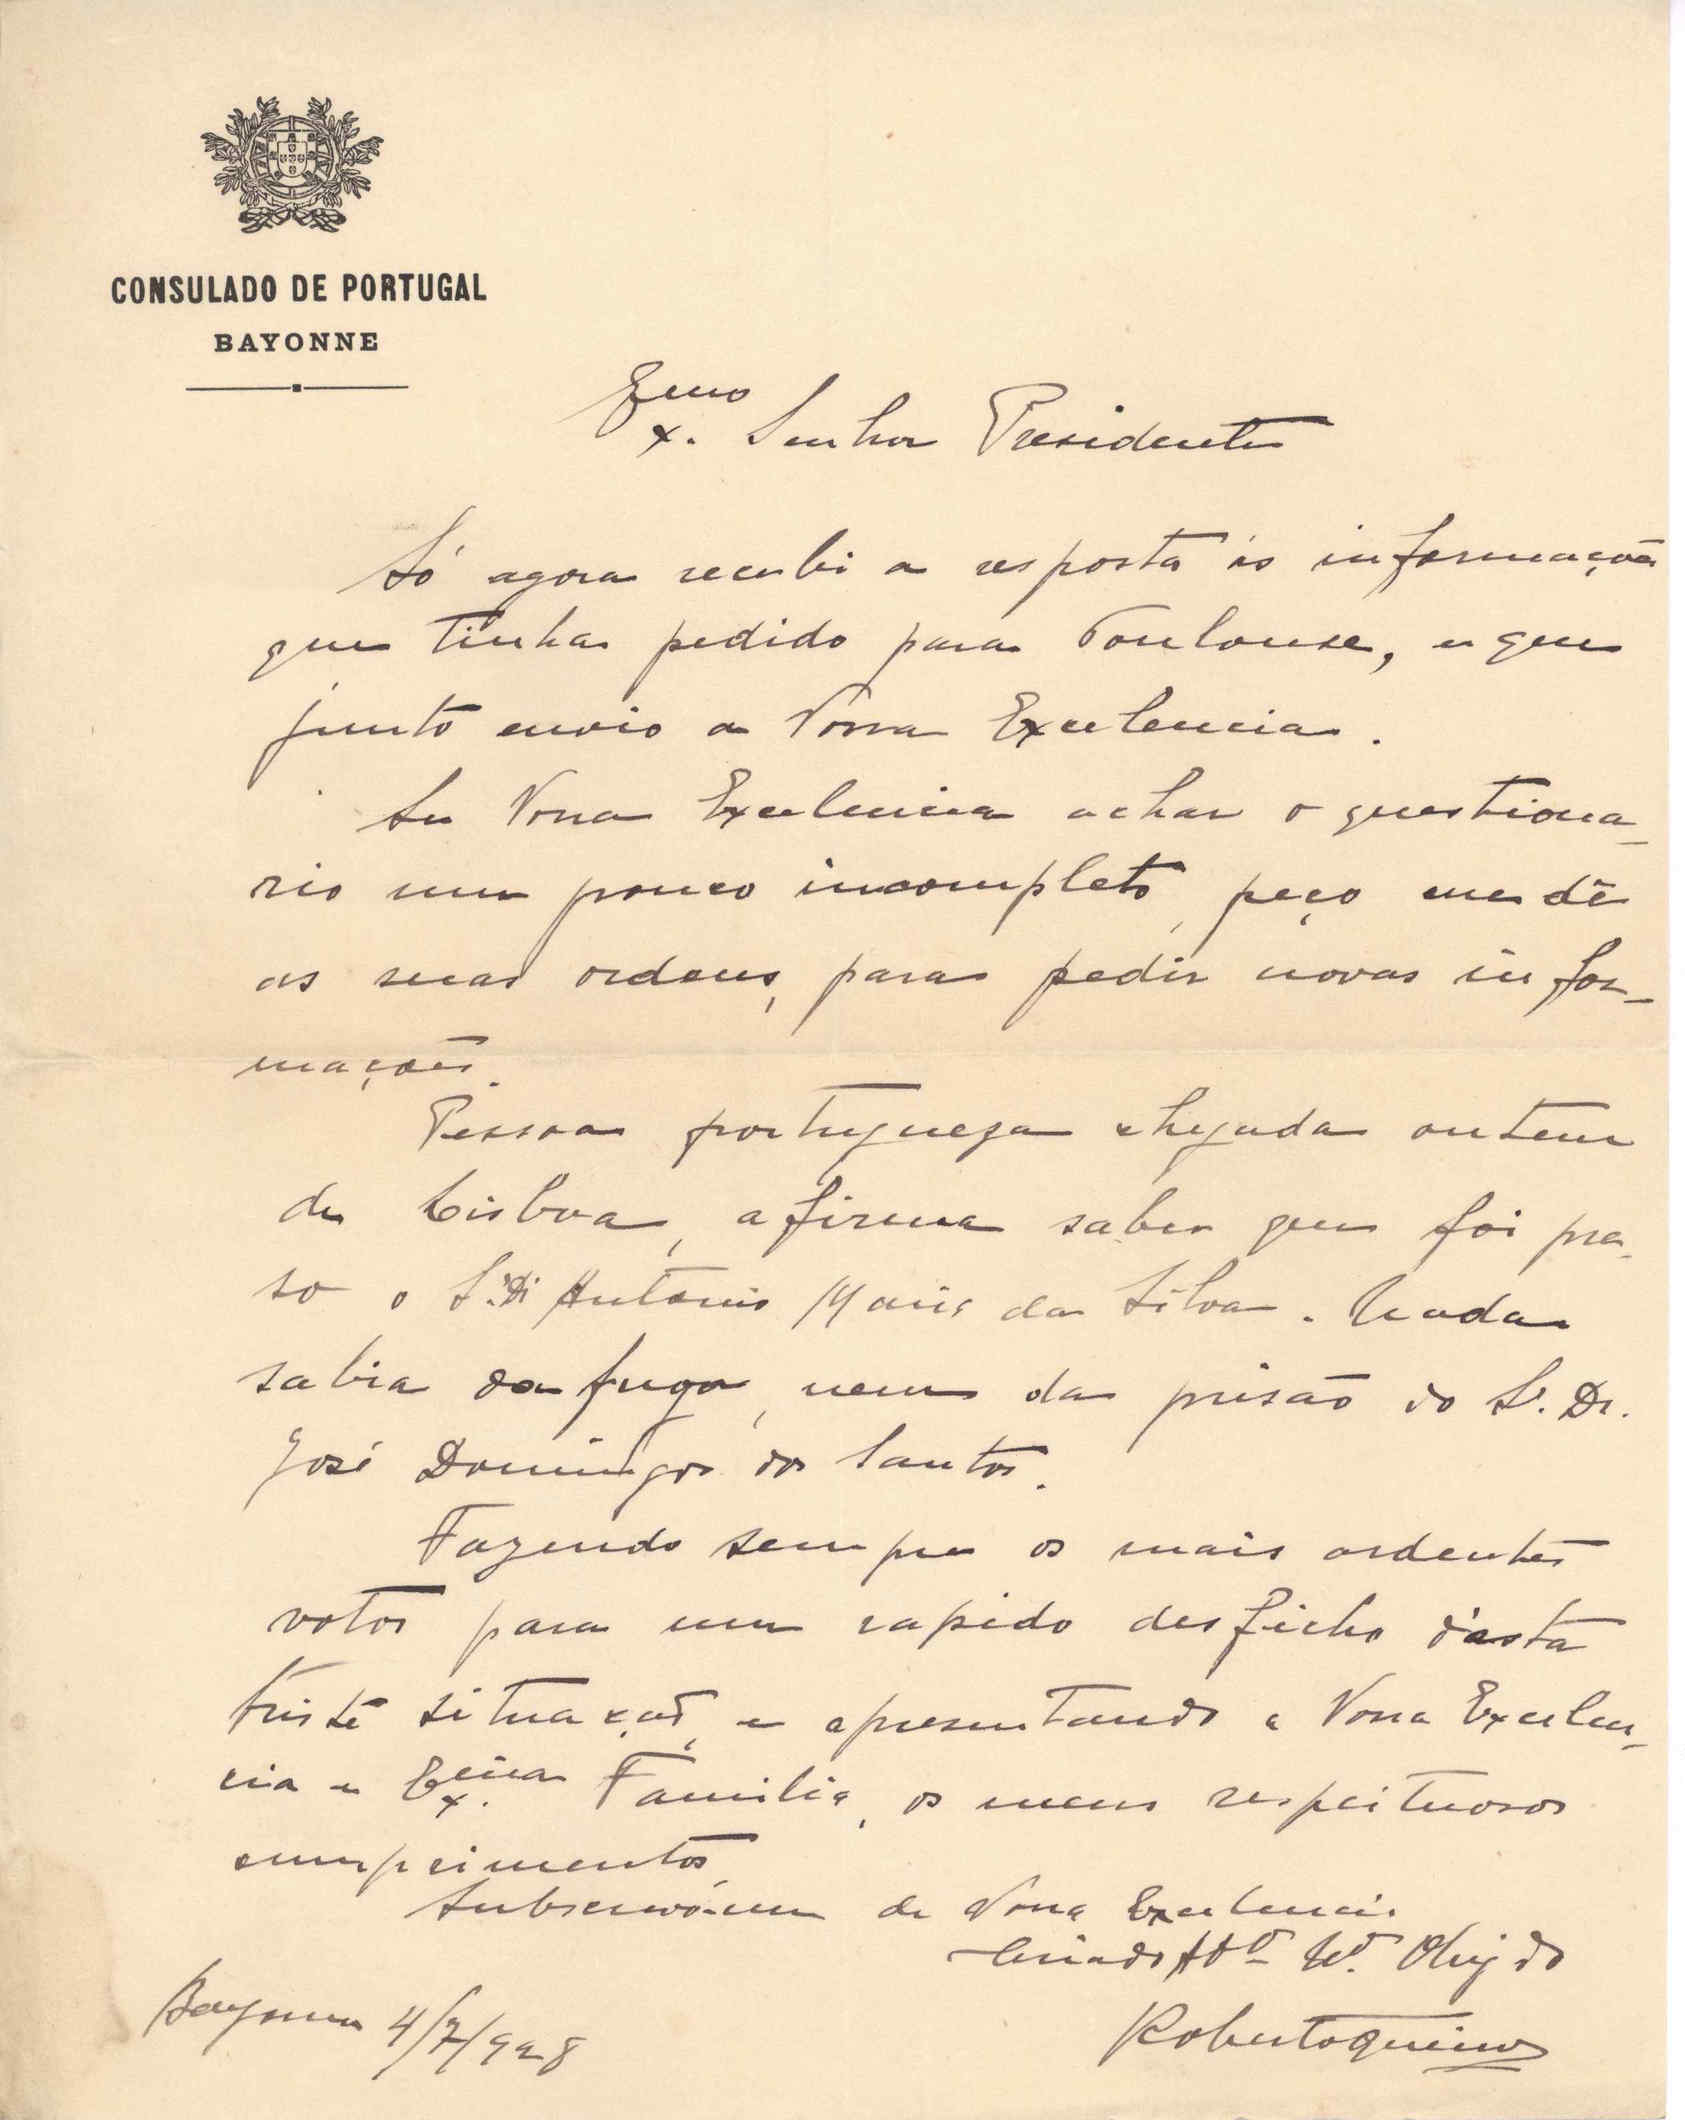 CONSULADO DE PORTUGAL
BAYONNE
Exmo. Senhor Presidente
Só agora recebi a resposta ás informações
que tinha pedido para Toulouse, e que
junto envio a Vossa Excelencia.
Se Vossa Excelencia achar o questiona-
rio um pouco incompleto, peço me dê
as suas ordens, para pedir novas infor-
mações.
Pessoa portugueza chegada ontem
de Lisboa, afirma saber que foi pre-
so o Sr. Dr António Maria da Silva. Nada
sabia da fuga, nem da prisão do Sr. Dr.
José Domingos dos Santos.
Fazendo sempre os mais ardentes
votos para um rapido desfecho d'esta
triste situação, e apresentando a Vossa Excelen-
cia e Exma. Familia, os meus respeituosos
cumprimentos,
Subscrevo-me de Vossa Excelencia
Criado Atto Vor. Obrigdo
Roberto
Bayonne 4/7/928